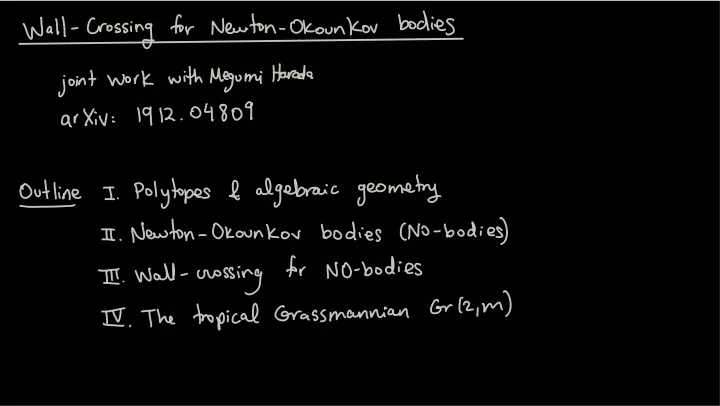 Wall-Crossing for Newton-Okounkov bodies
joint work with Megumi Harada
arXiv: 1912.04809
Outline I. Polytopes & algebraic geometry
II. Newton-Okounkov bodies (NO-bodies)
III. Wall-crossing for NO-bodies
IV. The tropical Grassmannian Gr(2,m)